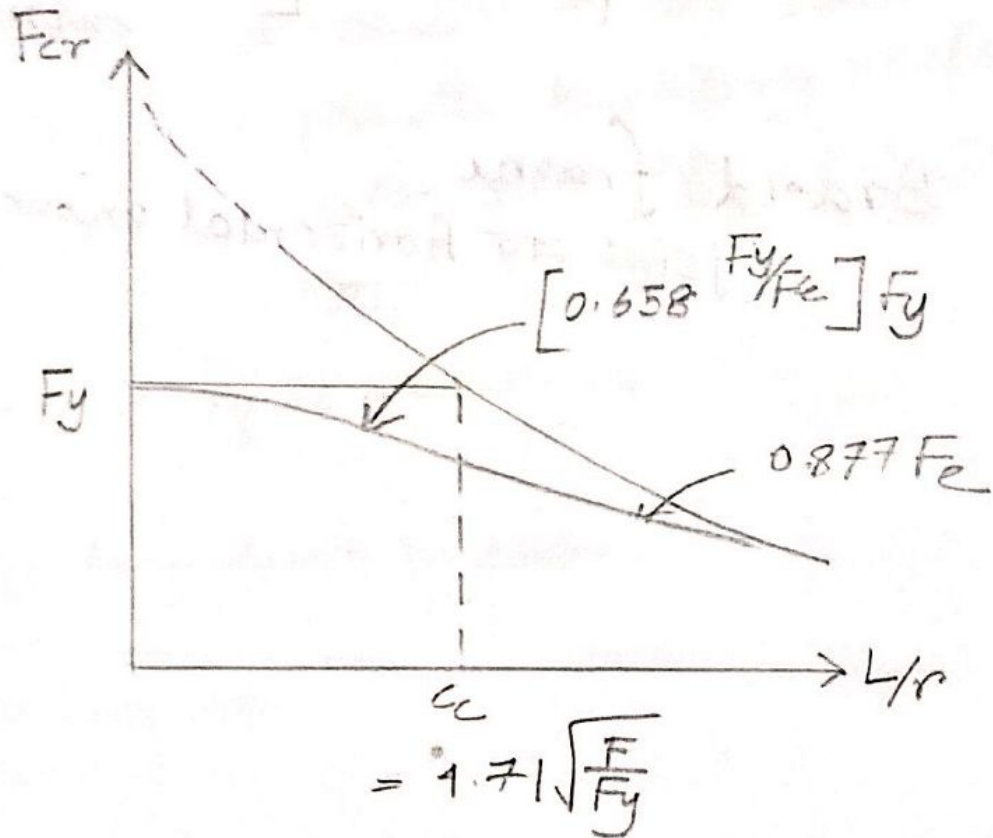 Fcr
[0.658^Fy/Fe] Fy
Fy
0.877 Fe
L/r
Cc
= 4.71 √(F/Fy)